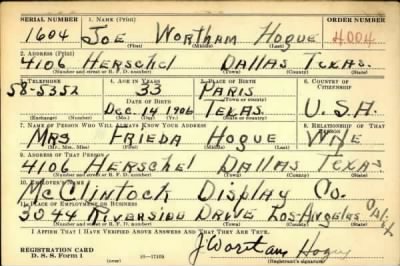 SERIAL NUMBER 1. NAME (Print) ORDER NUMBER
1604 JOE WORTHAM HOGUE 4004
(First) (Middle) (Last)
2. ADDRESS (Print)
4106 HERSCHEL DALLAS TEXAS.
(Number and street or R. F. D. number) (Town) (County) (State)
3. TELEPHONE 4. AGE IN YEARS 5. PLACE OF BIRTH 6. COUNTRY OF CITIZENSHIP
58-5352 33 PARIS
DATE OF BIRTH (Town or county)
DEC. 14, 1906 TEXAS. U.S.A.
(Exchange) (Number) (Mo.) (Day) (Yr.) (State or country)
7. NAME OF PERSON WHO WILL ALWAYS KNOW YOUR ADDRESS 8. RELATIONSHIP OF THAT PERSON
MRS FRIEDA HOGUE WIFE
(Mr., Mrs., Miss) (First) (Middle) (Last)
9. ADDRESS OF THAT PERSON
4106 HERSCHEL DALLAS TEXAS
(Number and street or R. F. D. number) (Town) (County) (State)
10. EMPLOYER'S NAME
McCLINTOCK DISPLAY CO.
11. PLACE OF EMPLOYMENT OR BUSINESS
3044 RIVERSIDE DRIVE LOS-ANGELES
(Number and street or R. F. D. number) (Town) (County) (State)
I AFFIRM THAT I HAVE VERIFIED ABOVE ANSWERS AND THAT THEY ARE TRUE.
REGISTRATION CARD
D. S. S. Form 1 (over) 16—17105 J Wortham Hogue